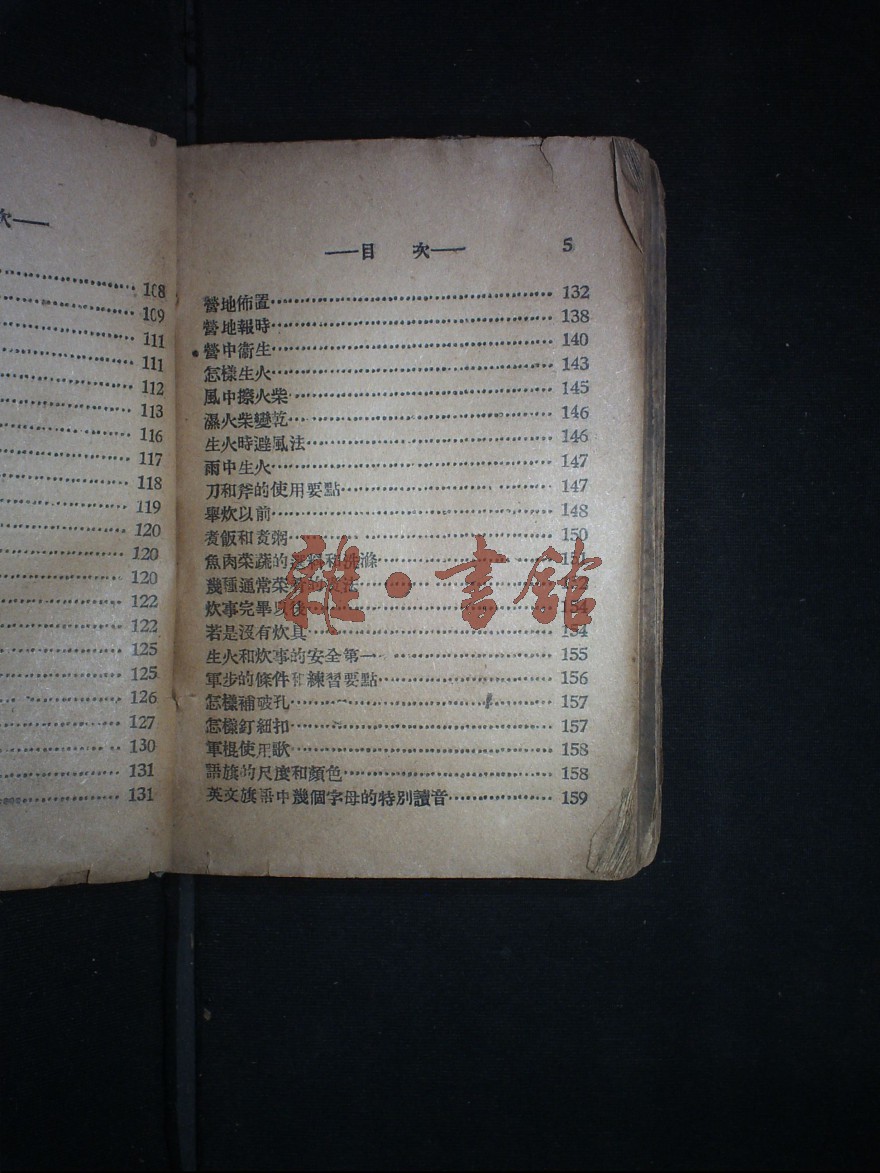 次——
108
109
111
111
112
113
116
117
118
119
120
120
120
122
122
125
125
126
127
130
131
131
——目 次—— 5
營地佈置 132
營地報時 138
營中衞生 140
怎樣生火 143
風中擦火柴 145
濕火柴變乾 146
生火時避風法 146
雨中生火 147
刀和斧的使用要點 147
舉炊以前 148
煑飯和煑粥 150
魚肉菜蔬的 料和洗滌 151
幾種通常菜肴的煑法 152
炊事完畢以後 154
若是沒有炊具 154
生火和炊事的安全第一 155
軍步的條件和練習要點 156
怎樣補破孔 157
怎樣釘紐扣 157
軍棍使用歌 158
語旗的尺度和顏色 158
英文旗語中幾個字母的特別讀音 159
雜·書館